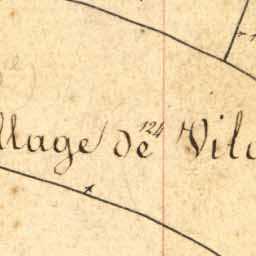 llage de Vil
124